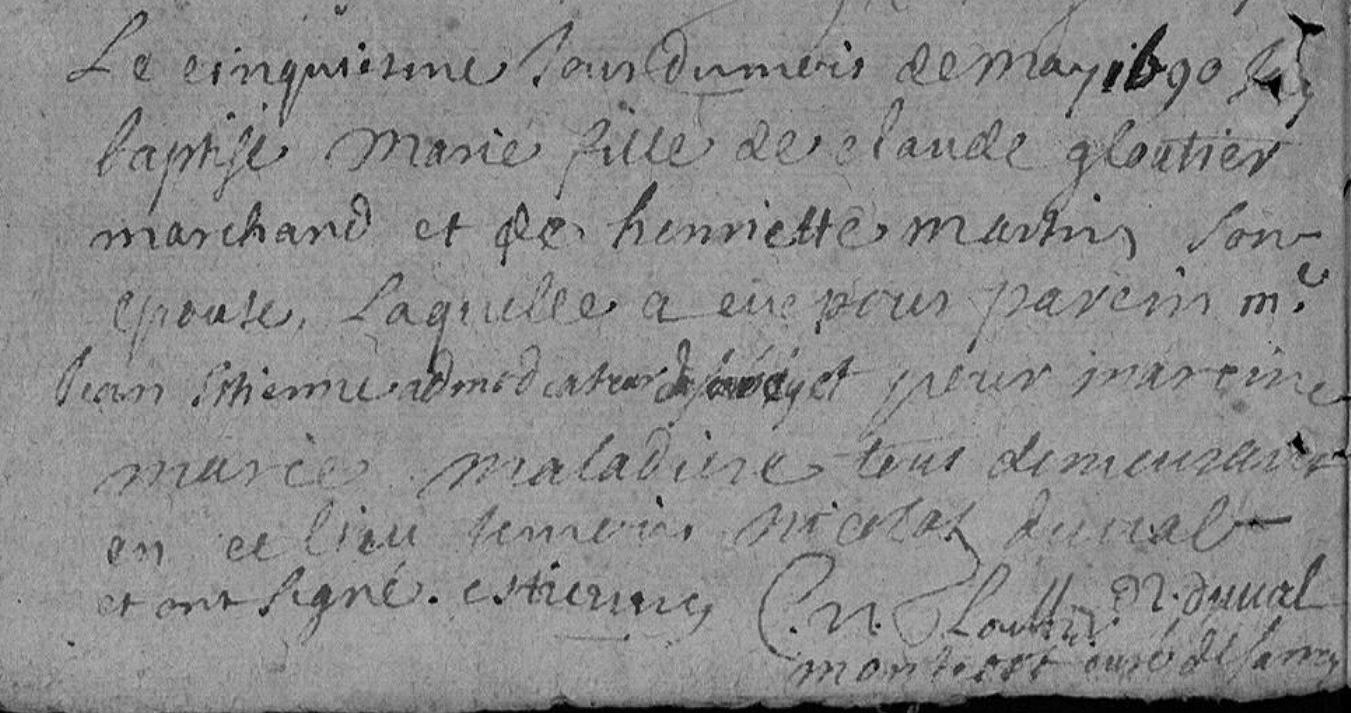 Le cinquiesme Jour du mois de may 1690 Jay
baptisé Marie fille de claude gloutier
marchand et de henriette martin son
epouse, Laquelle a eue pour parein mr
Jean Estienne admodiateur et pour mareine
marie maladiere tous demeurant
en ce lieu temoin Nicolas duual
et ont signé. estienne C. N. N. duual
montivot curé de